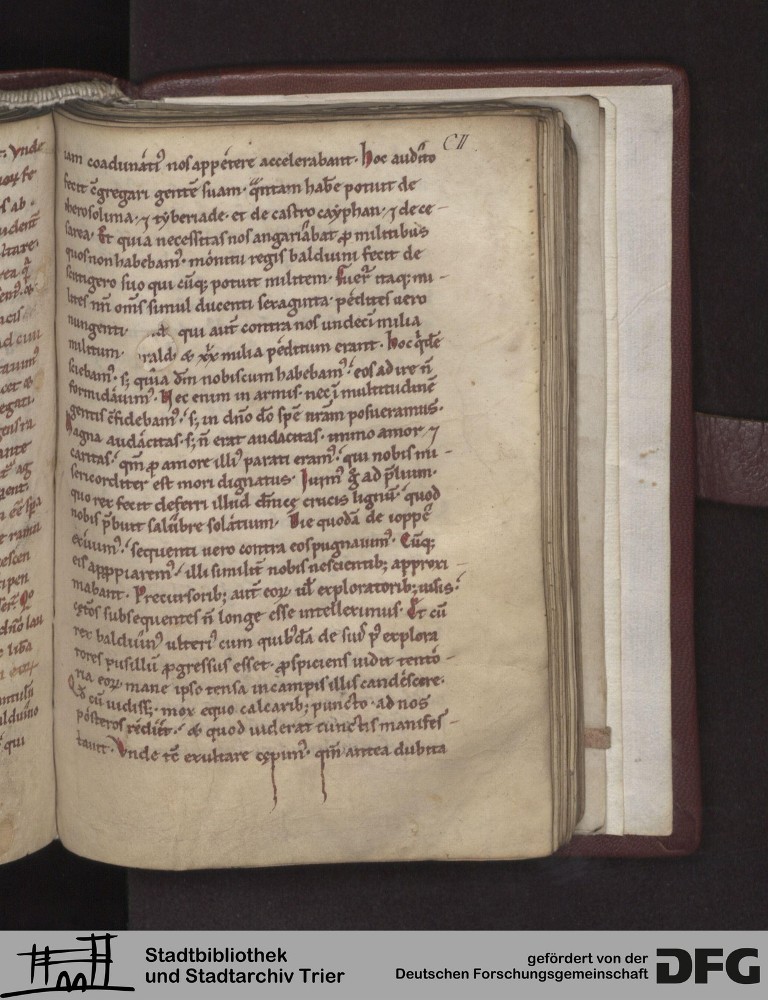 CII
iam coadunati᷒ nos appetere accelerabant. hoc audito
fecit c̄gregari gentē suam. q̄ntam habe potuit de
iherosolima. ⁊ tyberiade. et de castro cayphan. ⁊ de ce-
sarea. Et quia necessitas nos angariabat ꝓ militibus
quos non habebam᷒. monitu regis balduini fecit de
armigero suo qui cūq; potuit militem. Fuer̄ itaq; mi-
lites nr̄i om̄s simul ducenti sexaginta. pedites uero
nungenti qui aut̄ contra nos undecī milia
militum. & xx milia peditum erant. hoc q̄dē
sciebam᷒. s; quia dm̄ nobiscum habebam᷒. eos adire n̄
formidauim᷒. Nec enim in armis. nec ī multitudinē
gentis c̄fidebam᷒. s; in dn̄o dō spē nr̄am posueramus.
Magna audacitas. s; n̄ erat audacitas. immo amor ⁊
caritas. qm̄ ꝓ amore illi᷒ parati eram᷒. qui nobis mi-
sericorditer est mori dignatus. Iuim᷒ g̊ ad p̄lium.
quo rex fecit deferri illud dn̄ice crucis lignū. quod
nobis p̄buit salubre solatium. Die quodā de ioppe
exiuim᷒. sequenti uero contra eos pugnauim᷒. Cūq;
eis appropiarem᷒. illi similit̄ nobis nescientib; approxi-
mabant. Precursorib; aut̄ eoꝝ uł exploratorib; uisis.
cetos subsequentes n̄ longe esse intelleximus. Et cū
rex balduin᷒ ulteri᷒ cum quibdā de suis p̄ explora
tores pusillū ꝓgressus esset. ꝓspiciens uidit tento-
ria eoꝝ mane ipso tensa in campis illis candescere.
Qd̄ cū uidiss;. mox equo calcarib; puncto. ad nos
posteros rediit. & quod uiderat cunctis manifes-
tauit. Vnde tc̄ exultare cepim᷒. qm̄ antea dubita
Stadtbibliothek
und Stadtarchiv Trier
gefördert von der
Deutschen Forschungsgemeinschaft
DFG